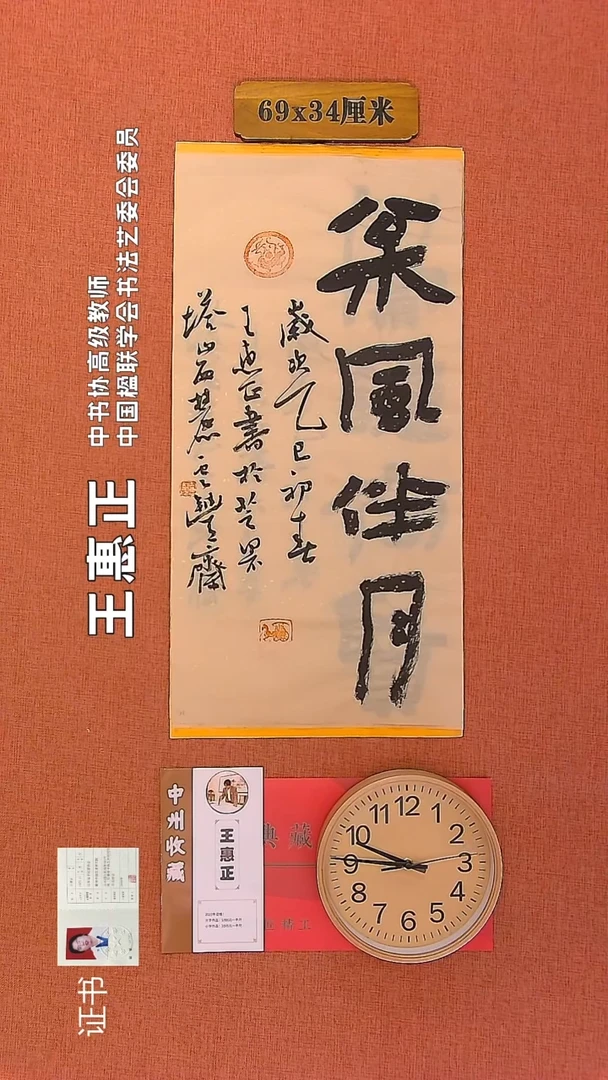 69x34厘米
采風伴月
歲次乙巳初春
王惠正書於芝罘
塔山西麓
齋
中书协高级教师
中国楹联学会书法艺委会委员
王惠正
王惠正
典藏
证书
12
1
2
3
4
5
6
7
8
9
10
11